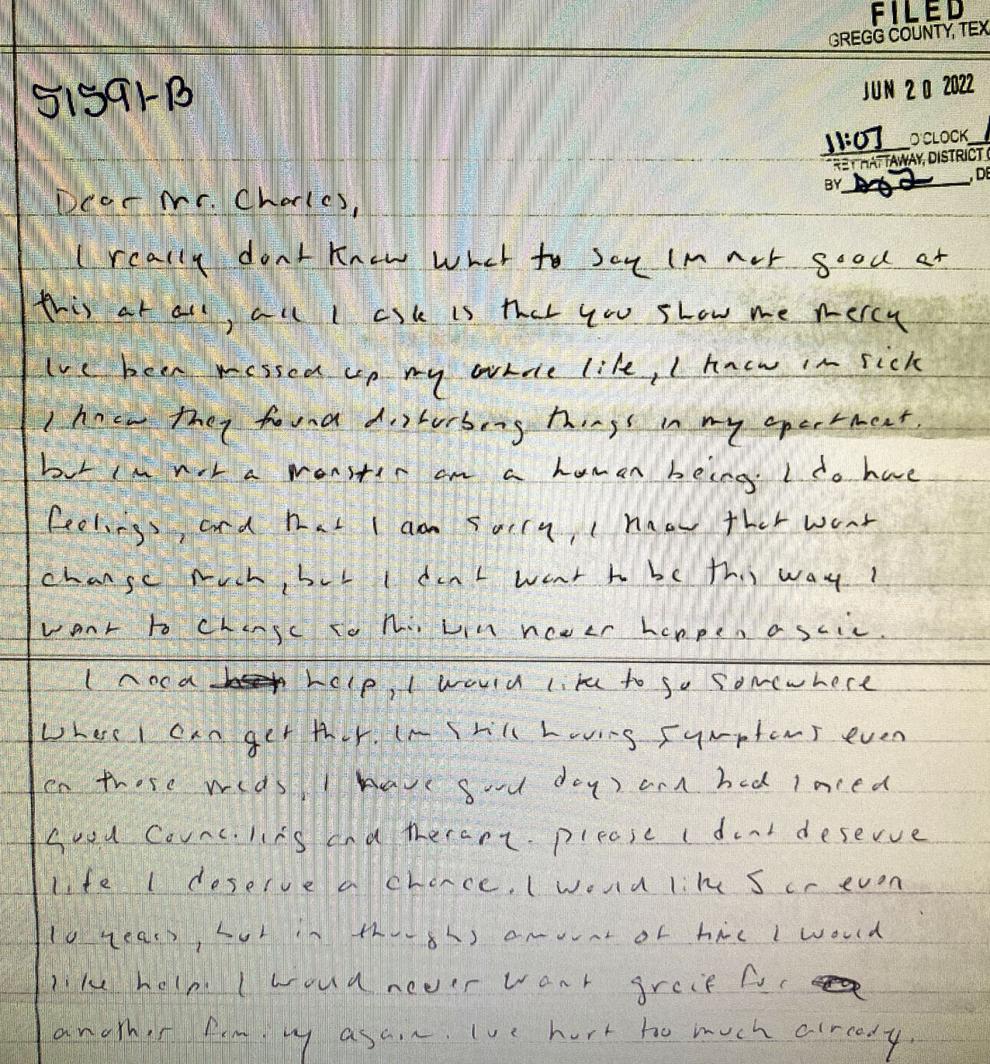 FILED
GREGG COUNTY, TEX
JUN 20 2022
51591-B
11:07 O'CLOCK
TREY HATTAWAY, DISTRICT C
BY , DE
Dear Mr. Charles,
I really dont know what to say Im not good at
this at all, all I ask is that you show me mercy
Ive been messed up my whole life, I know im sick
I know they found disturbing things in my apartment.
but im not a monster am a human being. I do have
feelings, and that I am sorry, I know that wont
change much, but I dont want to be this way I
want to change so this will never happen again.
I need help, I would like to go somewhere
where I can get that. Im still having symptoms even
on these meds, I have good days and bad I need
good Counciling and therapy. please I dont deserve
life I deserve a chance. I would like 5 or even
10 years, but in amount of time I would
like help. I would never want greif for
another family again. Ive hurt too much already.